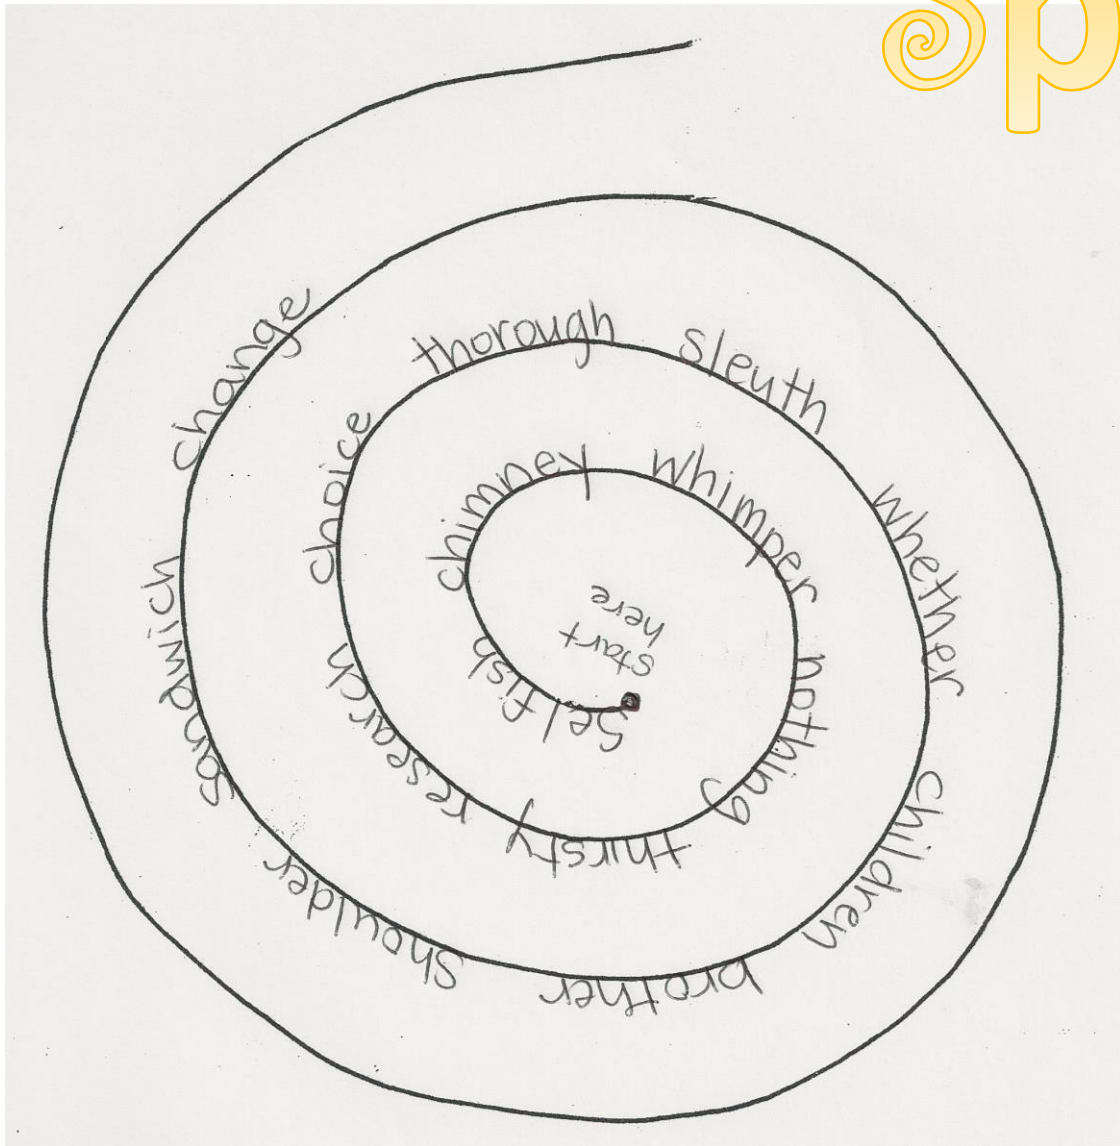 sp
start
here
Selfish
chimney
whimper
nothing
thirsty
research
choice
thorough
sleuth
whether
children
brother
Shoulder
Sandwich
change